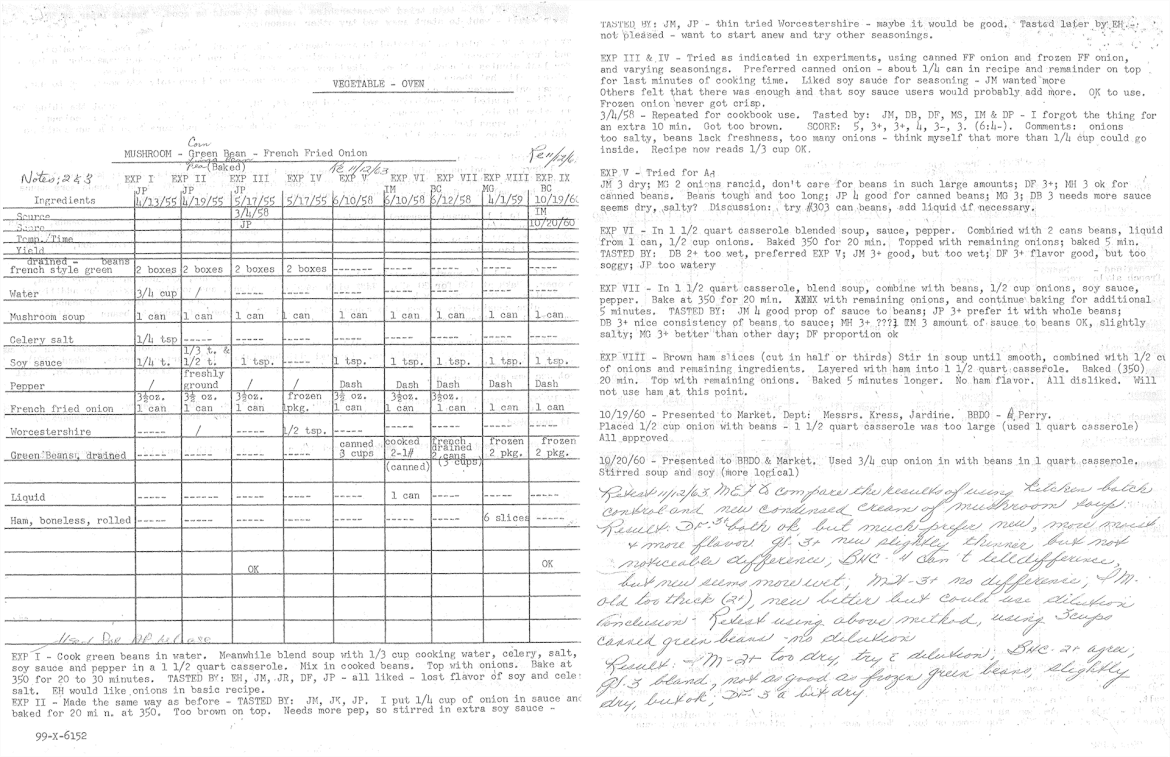 VEGETABLE - OVEN
Corn
MUSHROOM - Green Bean - French Fried Onion
(Baked)
Re 11/12/63
Notes; 2 & 3 EXP I EXP II EXP III EXP IV EXP V EXP VI EXP VII EXP VIII EXP IX
JP JP JP IM BC MG BC
Ingredients 4/13/55 4/19/55 5/17/55 5/17/55 6/10/58 6/10/58 6/12/58 4/1/59 10/19/60
Source 3/4/58 IM
Score JP 10/20/60
Temp./Time
Yield
drained - beans
french style green 2 boxes 2 boxes 2 boxes 2 boxes ------ ----- ----- ----- -----
Water 3/4 cup / ----- ----- ----- ----- ----- ----- -----
Mushroom soup 1 can 1 can 1 can 1 can 1 can 1 can 1 can 1 can 1 can
Celery salt 1/4 tsp ----- ----- ----- ----- ----- ----- ----- -----
1/3 t. &
Soy sauce 1/4 t. 1/2 t. 1 tsp. ----- 1 tsp. 1 tsp. 1 tsp. 1 tsp. 1 tsp.
freshly
Pepper / ground / / Dash Dash Dash Dash Dash
3½oz. 3½ oz. 3½oz. frozen 3½ oz. 3½oz. 3½oz.
French fried onion 1 can 1 can 1 can 1pkg. 1 can 1 can 1 can 1 can 1 can
Worcestershire ----- / ----- 1/2 tsp. ----- ----- ----- ----- -----
canned cooked french frozen frozen
Green Beans, drained ----- ----- ----- ----- 3 cups 2-1# drained 2 cans 2 pkg. 2 pkg.
(canned) (3 cups)
Liquid ----- ----- ----- ----- ----- 1 can ----- ----- -----
Ham, boneless, rolled ----- ----- ----- ----- ----- ----- ----- 6 slices -----
OK OK
EXP I - Cook green beans in water. Meanwhile blend soup with 1/3 cup cooking water, celery, salt,
soy sauce and pepper in a 1 1/2 quart casserole. Mix in cooked beans. Top with onions. Bake at
350 for 20 to 30 minutes. TASTED BY: EH, JM, JR, DF, JP - all liked - lost flavor of soy and cele
salt. EH would like onions in basic recipe.
EXP II - Made the same way as before - TASTED BY: JM, JK, JP. I put 1/4 cup of onion in sauce and
baked for 20 mi n. at 350. Too brown on top. Needs more pep, so stirred in extra soy sauce -
99-X-6152
TASTED BY: JM, JP - thin tried Worcestershire - maybe it would be good. Tasted later by EH
not pleased - want to start anew and try other seasonings.
EXP III & IV - Tried as indicated in experiments, using canned FF onion and frozen FF onion,
and varying seasonings. Preferred canned onion - about 1/4 can in recipe and remainder on top
for last minutes of cooking time. Liked soy sauce for seasoning - JM wanted more
Others felt that there was enough and that soy sauce users would probably add more. OK to use.
Frozen onion never got crisp.
3/4/58 - Repeated for cookbook use. Tasted by: JM, DB, DF, MS, IM & DF - I forgot the thing for
an extra 10 min. Got too brown. SCORE: 5, 3+, 3+, 4, 3-, 3. (6:4-). Comments: onions
too salty, beans lack freshness, too many onions - think myself that more than 1/4 cup could go
inside. Recipe now reads 1/3 cup OK.
EXP V - Tried for
JM 3 dry; MG 2 onions rancid, don't care for beans in such large amounts; DF 3+; MH 3 ok for
canned beans. Beans tough and too long; JP 4 good for canned beans; MG 3; DB 3 needs more sauce
seems dry, salty? Discussion: try #303 can beans, add liquid if necessary.
EXP VI - In 1 1/2 quart casserole blended soup, sauce, pepper. Combined with 2 cans beans, liquid
from 1 can, 1/2 cup onions. Baked 350 for 20 min. Topped with remaining onions; baked 5 min.
TASTED BY: DB 2+ too wet, preferred EXP V; JM 3+ good, but too wet; DF 3+ flavor good, but too
soggy; JP too watery
EXP VII - In 1 1/2 quart casserole, blend soup, combine with beans, 1/2 cup onions, soy sauce,
pepper. Bake at 350 for 20 min. XXXX with remaining onions, and continue baking for additional
5 minutes. TASTED BY: JM 4 good prop of sauce to beans; JP 3+ prefer it with whole beans;
DB 3+ nice consistency of beans to sauce; MH 3+ ???1 IM 3 amount of sauce to beans OK, slightly
salty; MG 3+ better than other day; DF proportion ok
EXP VIII - Brown ham slices (cut in half or thirds) Stir in soup until smooth, combined with 1/2 cu
of onions and remaining ingredients. Layered with ham into 1 1/2 quart casserole. Baked (350)
20 min. Top with remaining onions. Baked 5 minutes longer. No ham flavor. All disliked. Will
not use ham at this point.
10/19/60 - Presented to Market. Dept: Messrs. Kress, Jardine. BBDO - Perry.
Placed 1/2 cup onion with beans - 1 1/2 quart casserole was too large (used 1 quart casserole)
All approved
10/20/60 - Presented to BBDO & Market. Used 3/4 cup onion in with beans in 1 quart casserole.
Stirred soup and soy (more logical)
Retest 11/12/63 to compare the results of using kitchen batch
control and new condensed cream of mushroom soup.
Result: DF-3+ both ok but much prefer new, more moist
& more flavor 3+ new slightly thinner but not
noticeable difference; BHC-4 can't tell difference,
but new seems more wet; MH-3+ no difference; IM-
old too thick (2+), new better but could use dilution
Conclusion - Retest using above method, using 3 cups
canned green beans - no dilution
Result: IM-2+ too dry, try & dilution; BHC-2+ agree;
3 bland, not as good as frozen green beans, slightly
dry, but ok; DF. 3 a bit dry